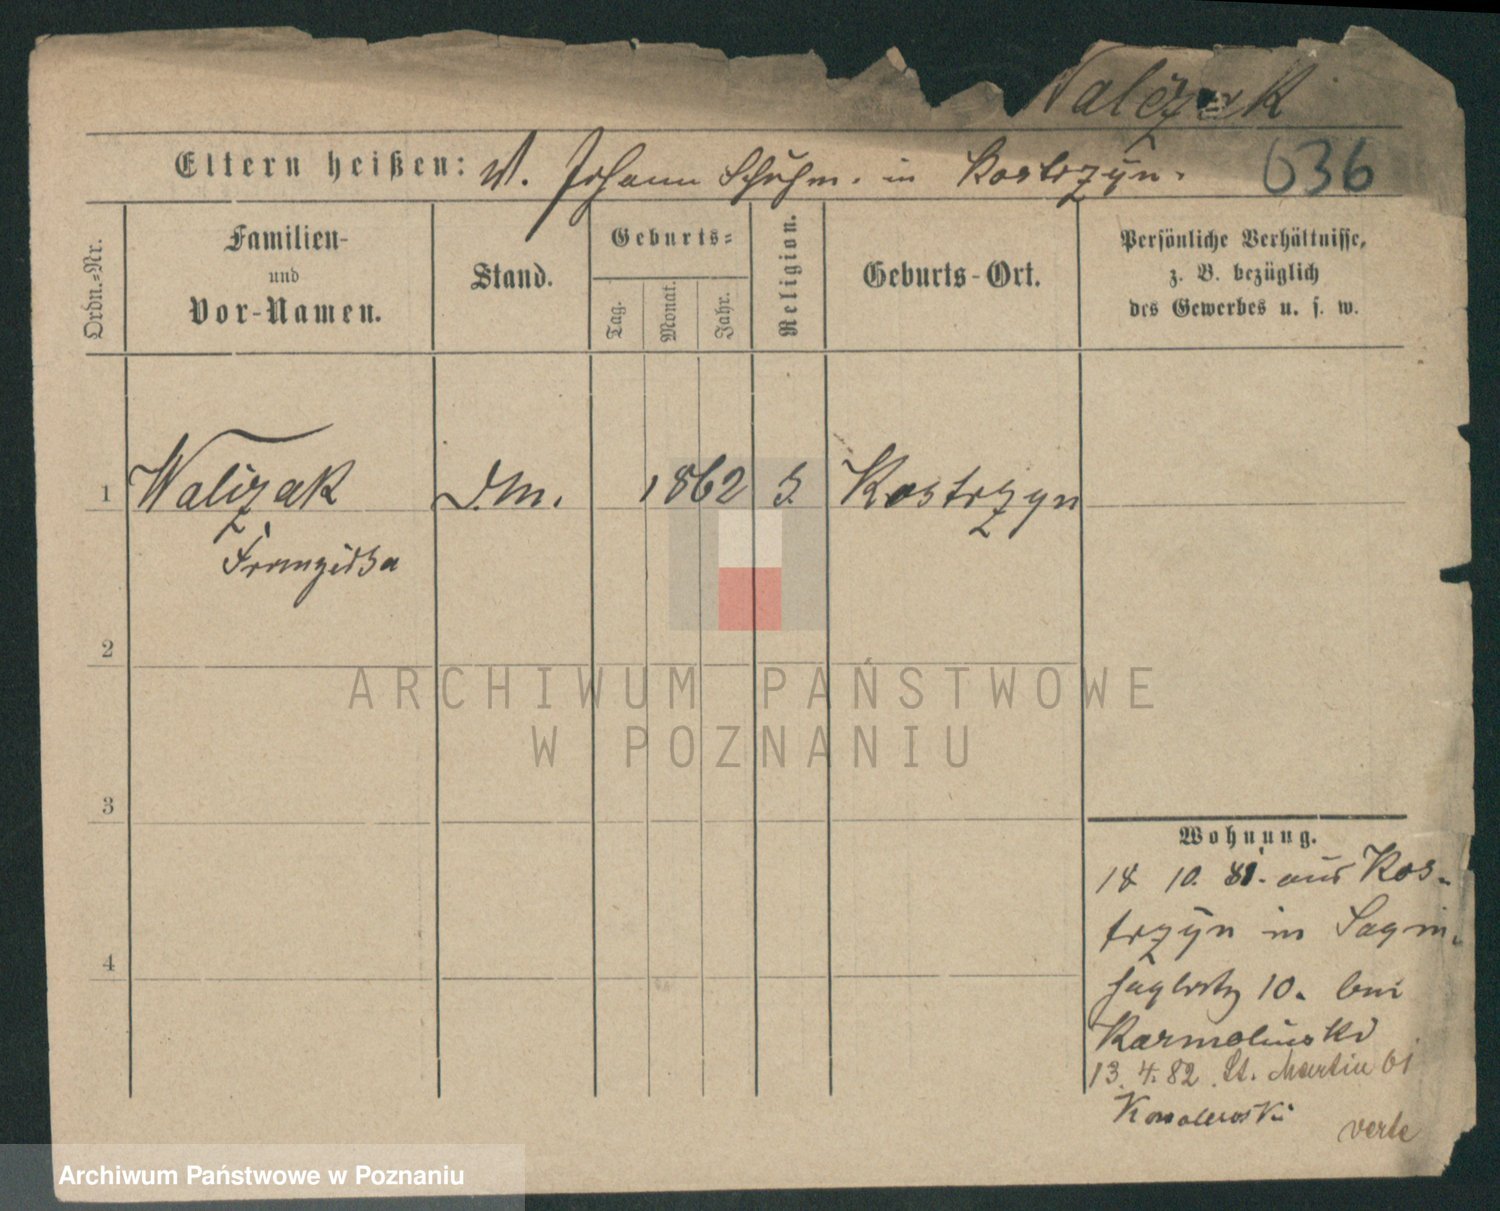 Walczak
Eltern heißen: W. Johann Schuhm. in Kostrzyn.
636
Ordn.-Nr.
Familien-
und
Vor-Namen.
Stand.
Geburts-
Tag.
Monat.
Jahr.
Religion.
Geburts-Ort.
Persönliche Verhältnisse,
z. B. bezüglich
des Gewerbes u. s. w.
1
Walczak
D.M.
1862
Kostrzyn
Franziska
2
3
4
Wohnung.
18 10. 81. aus Kos-
trzyn in
10. bei
Karmolinski
13. 4. 82. St. Martin 61
Kowalewski
verte
ARCHIWUM PAŃSTWOWE
W POZNANIU
Archiwum Państwowe w Poznaniu